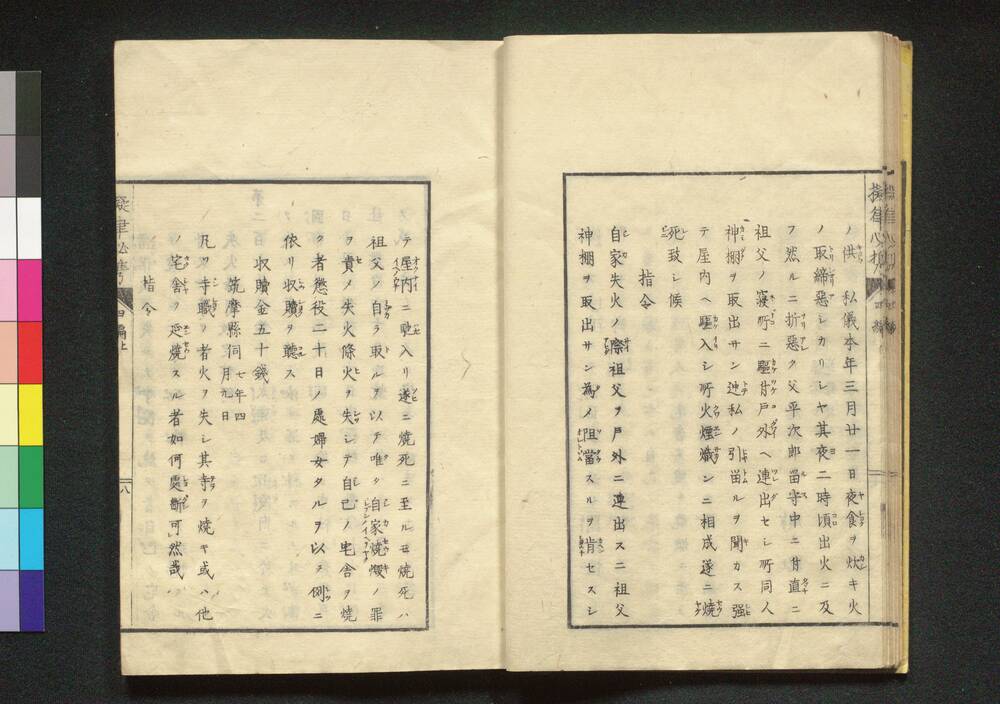 ノ供 私儀本年三月廿一日夜食ヲ炊キ火
ノ取締惡シカリシヤ其夜二時頃出火ニ及
フ然ルニ折惡ク父平次郎留守中ニ付直ニ
祖父ノ寢所ニ驅付戸外ヘ連出セシ所同人
神棚ヲ取出サン迚私ノ引留ルヲ聞カス强
テ屋内ヘ驅入シ所火煙熾ンニ相成遂ニ燒
死致シ候
指令
自家失火ノ際祖父ヲ戸外ニ連出スニ祖父
神棚ヲ取出サン爲メ阻當スルヲ肯セスシ
テ屋内ニ駈入リ遂ニ燒死ニ至ルモ燒死ハ
祖父ノ自ラ取ルヲ以テ唯タ自家燒燬ノ罪
ヲ責メ失火條火ヲ失シテ自己ノ宅舍ヲ燒
ク者懲役二十日ノ處婦女タルヲ以ス例ニ
依リ収贖ヲ聽ス
収贖金五十錢
筑摩縣伺 七年四月九日
凡ソ寺職ノ者火ヲ失シ其寺ヲ燒キ或ハ他
ノ宅舍ヲ延燒スル者如何處斷可然哉
指令
四編上
八